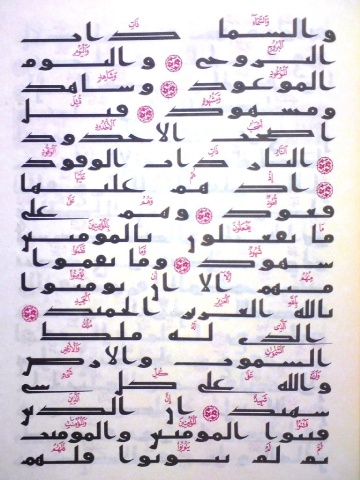 والسما ذات
البروج ۝ واليوم
الموعود ۝ وشاهد
ومشهود ۝ قتل
اصحب الاخدود
النار ذات الوقود
۝ اذ هم عليها
قعود ۝ وهم على
ما يفعلون بالمومنين
شهود ۝ وما نقموا
منهم الا ان يومنوا
بالله العزيز الحميد ۝
الذي له ملك
السموت والارض
والله على كل شي
شهيد ۝ ان الذين
فتنوا المومنين والمومنت
ثم لم يتوبوا فلهم